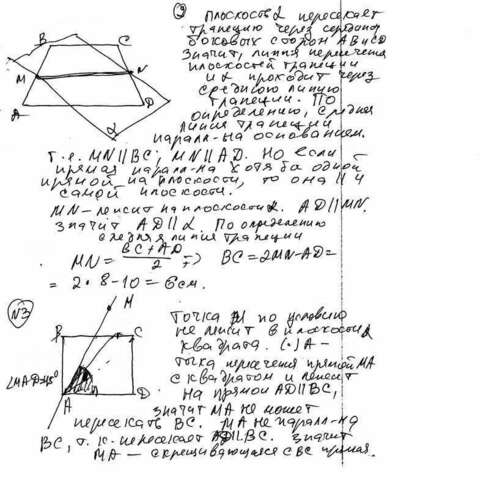 Плоскость α пересекает
трапецию через середины
боковых сторон AB и CD
значит, линия пересечения
плоскостей трапеции
и α проходит через
среднюю линию
трапеции. По
определению, средняя
линия трапеции
паралл-на основаниям.
B C
M N
A D
α
Т.е. MN || BC; MN || AD. Но если
прямая паралл-на хотя бы одной
прямой на плоскости, то она || и
самой плоскости.
MN – лежит на плоскости α. AD || MN.
значит AD || α По определению
средняя линия трапеции
MN = BC + AD / 2 => BC = 2MN - AD =
= 2 · 8 - 10 = 6 см.
N3
M
B C
∠MAD=45°
A D
Точка M по условию
не лежит в плоскости
квадрата. (·) A –
точка пересечения прямой MA
с квадратом и лежит
на прямой AD || BC,
значит MA не может
пересекать BC. MA не паралл-на
BC, т.к. пересекает AD || BC. значит
MA – скрещивающаяся с BC прямая.